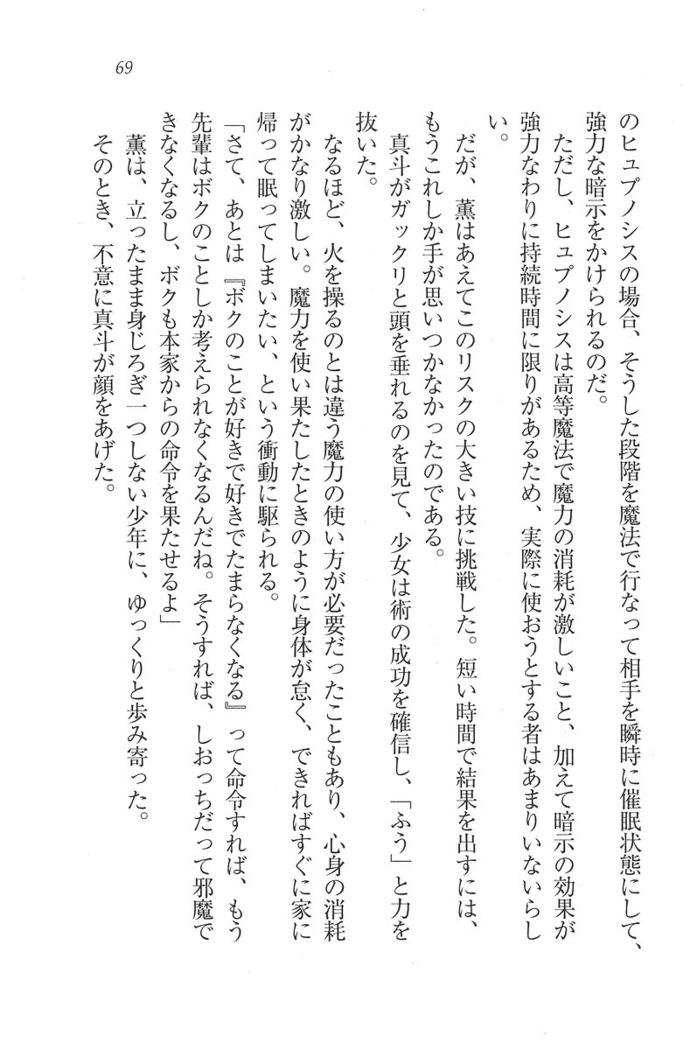 69
のヒュプノシスの場合、そうした段階を魔法で行なって相手を瞬時に催眠状態にして、
強力な暗示をかけられるのだ。
ただし、ヒュプノシスは高等魔法で魔力の消耗が激しいこと、加えて暗示の効果が
強力なわりに持続時間に限りがあるため、実際に使おうとする者はあまりいないらし
い。
だが、薫はあえてこのリスクの大きい技に挑戦した。短い時間で結果を出すには、
もうこれしか手が思いつかなかったのである。
真斗がガックリと頭を垂れるのを見て、少女は術の成功を確信し、「ふう」と力を
抜いた。
なるほど、火を操るのとは違う魔力の使い方が必要だったこともあり、心身の消耗
がかなり激しい。魔力を使い果たしたときのように身体が怠く、できればすぐに家に
帰って眠ってしまいたい、という衝動に駆られる。
「さて、あとは『ボクのことが好きで好きでたまらなくなる』って命令すれば、もう
先輩はボクのことしか考えられなくなるんだね。そうすれば、しおっちだって邪魔で
きなくなるし、ボクも本家からの命令を果たせるよ」
薫は、立ったまま身じろぎ一つしない少年に、ゆっくりと歩み寄った。
そのとき、不意に真斗が顔をあげた。